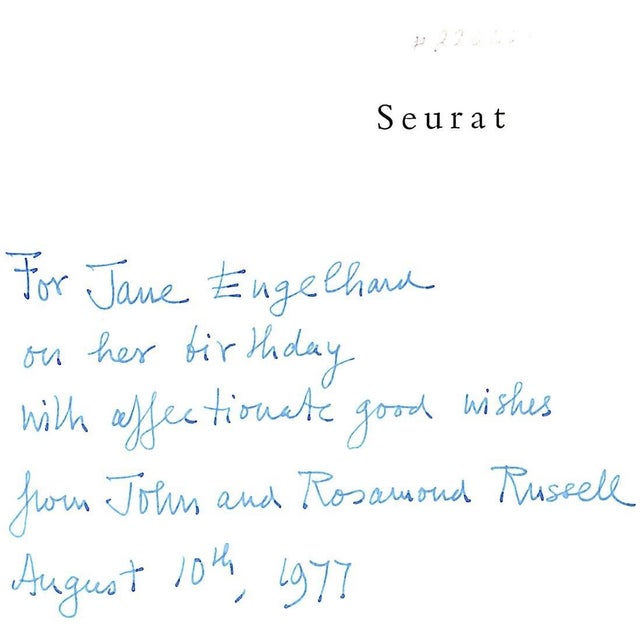 Seurat
For Jane Engelhard
on her birthday
with affectionate good wishes
from John and Rosamond Russell
August 10th, 1977